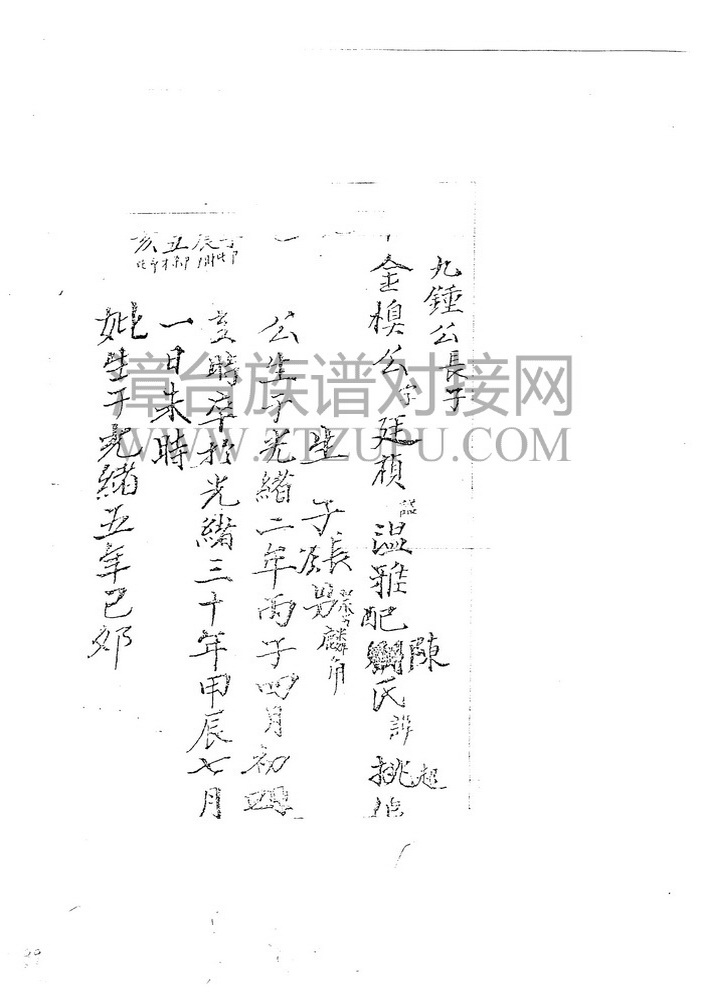 九鍾公長子
金模公字廷禎諡温雅配陳氏諱挑
生子長男麟角
公生于光緒二年丙子四月初四
亥時卒於光緒三十年甲辰七月
一日未時
妣生于光緒五年己卯
亥 丑 辰
章台族谱对接网
WWW.ZTZUPU.COM